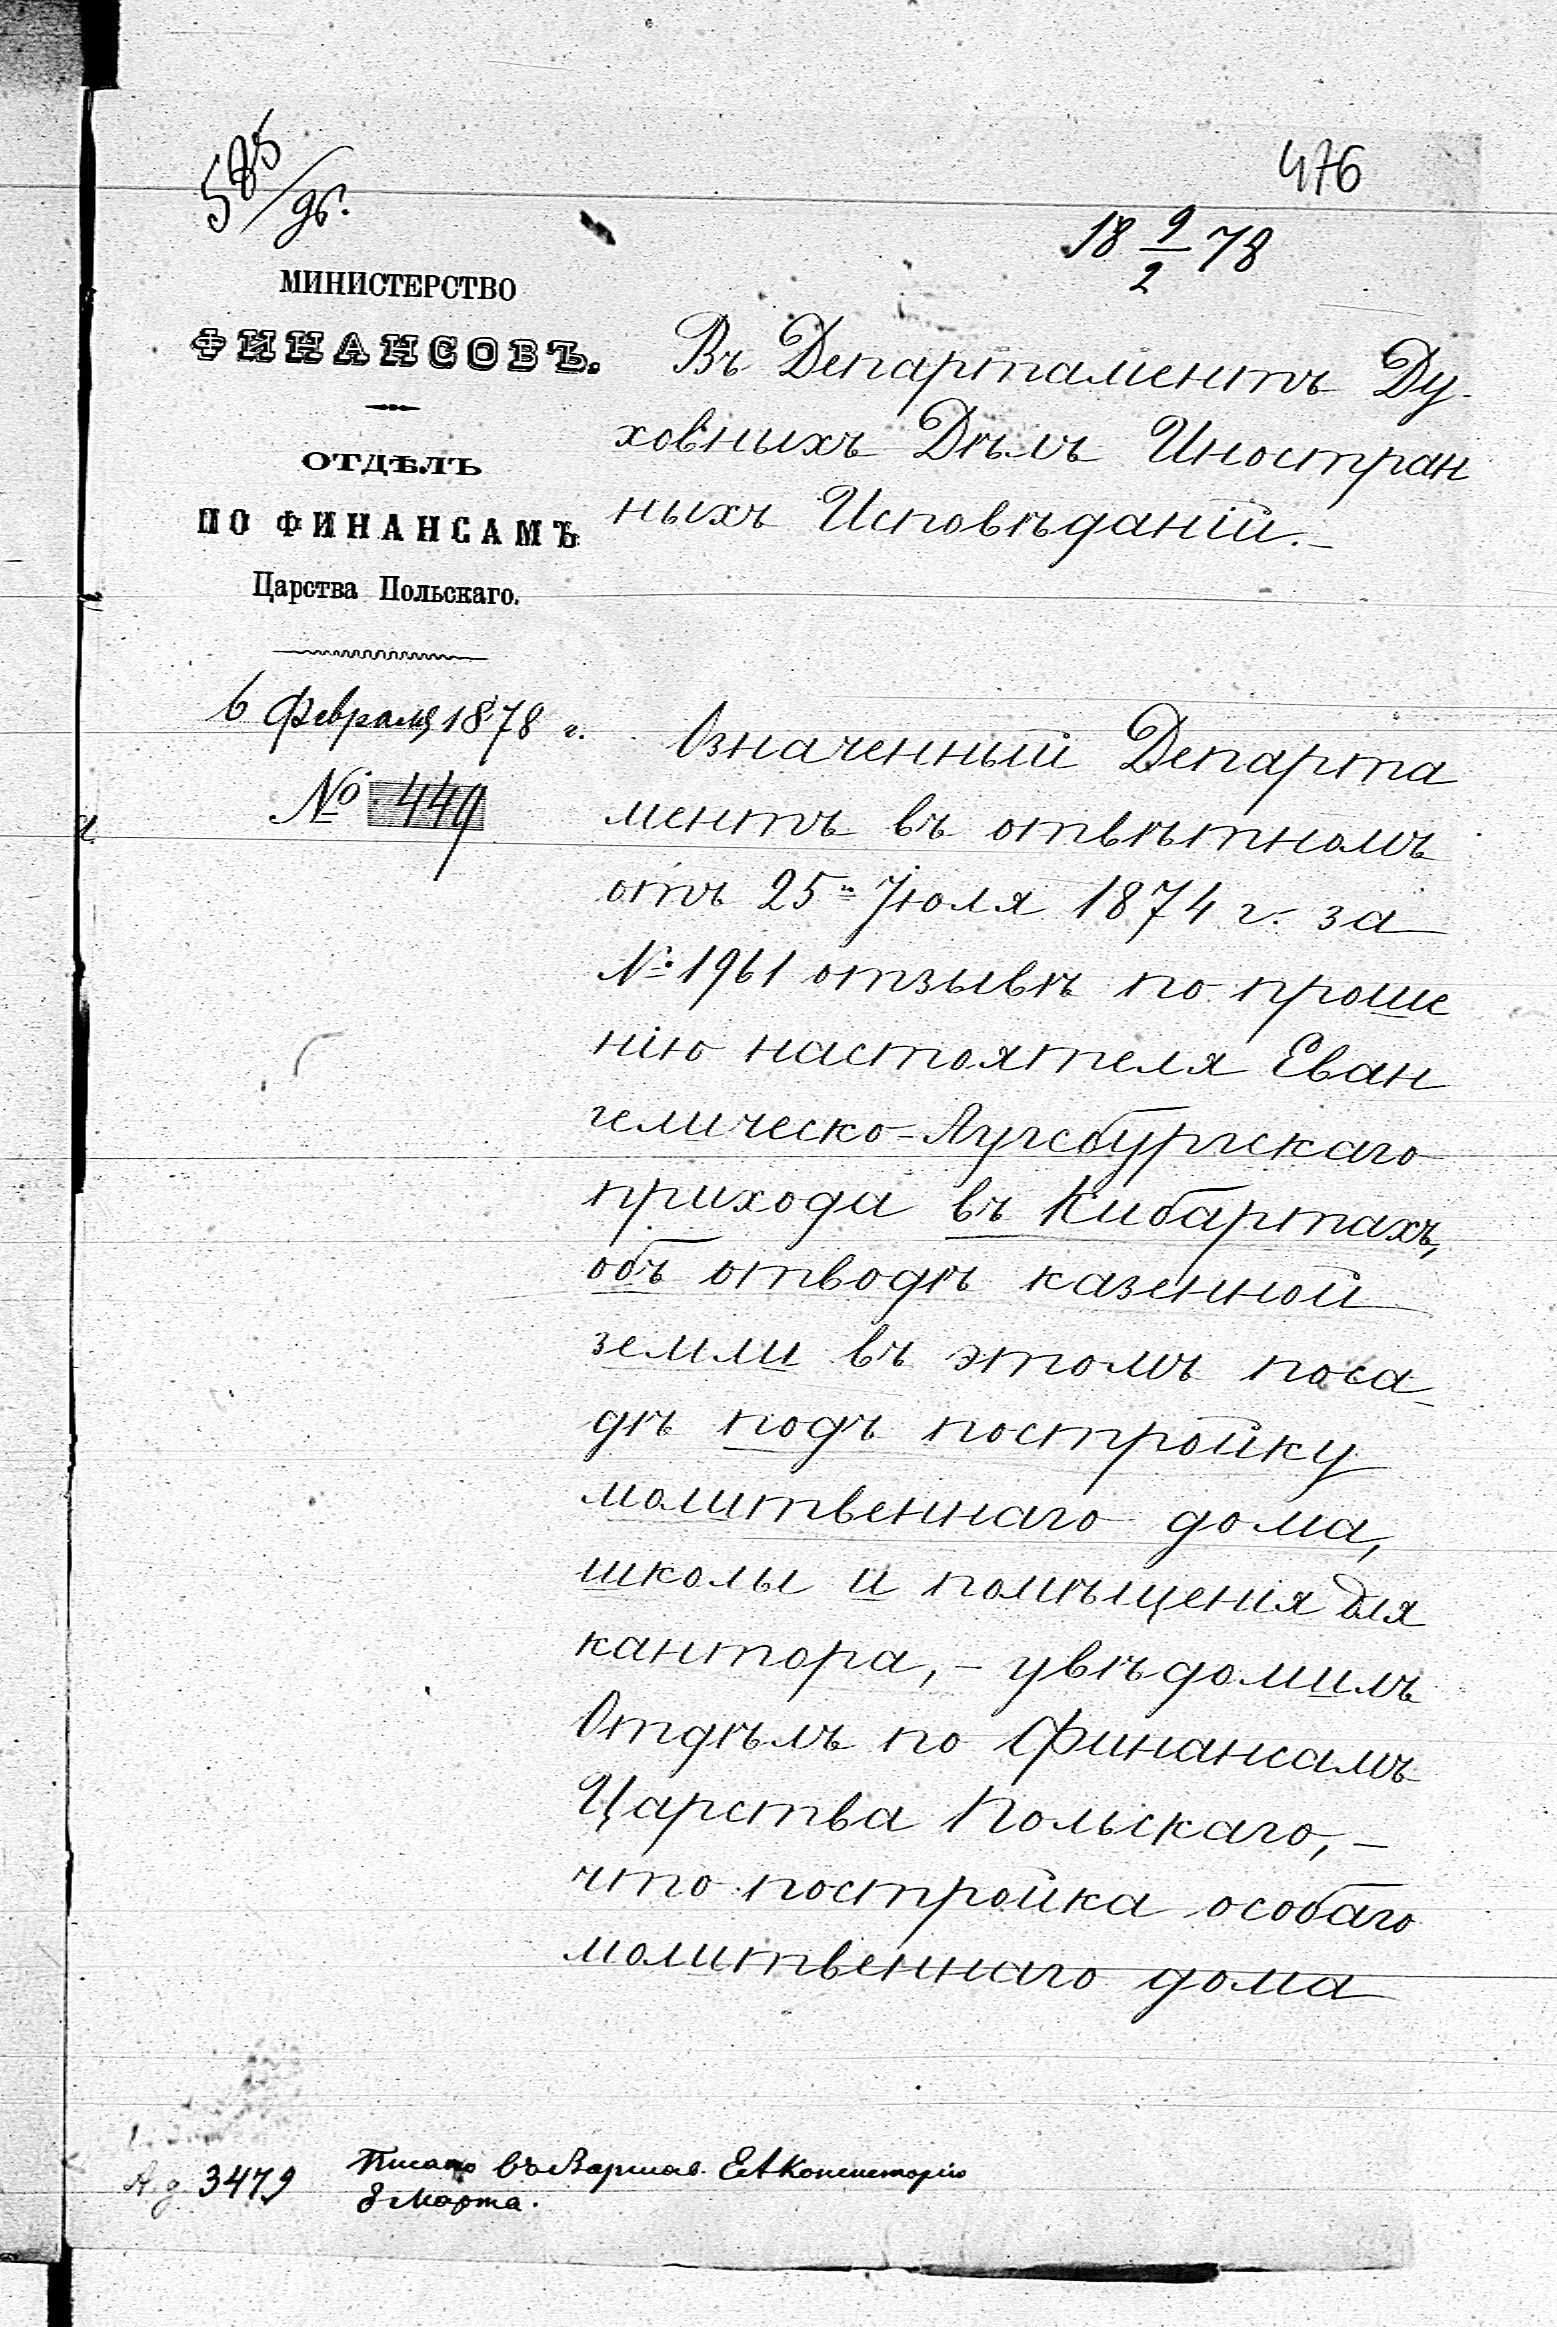 476
18 9/2 78
МИНИСТЕРСТВО
ФИНАНСОВЪ.
ОТДѢЛЪ
ПО ФИНАНСАМЪ
Царства Польскаго.
6 Февраля 1878 г.
№ 449
Въ Департаментъ Ду-
ховныхъ Дѣлъ Иностран
ныхъ Исповѣданій.
Означенный Департа
ментъ въ отвѣтномъ
отъ 25 Іюля 1874 г. за
№ 1961 отзывѣ по проше
нію настоятеля Еван
гелическо-Аугсбургскаго
прихода въ Кибартахъ,
объ отводѣ казенной
земли въ этомъ поса-
дѣ подъ постройку
молитвеннаго дома,
школы и помѣщенія для
кантора, - увѣдомилъ
Отдѣлъ по Финансамъ
Царства Польскаго, -
что постройка особаго
молитвеннаго дома
А. д. 3479
Писано въ Варшав. ЕА Консисторію
8 Марта.